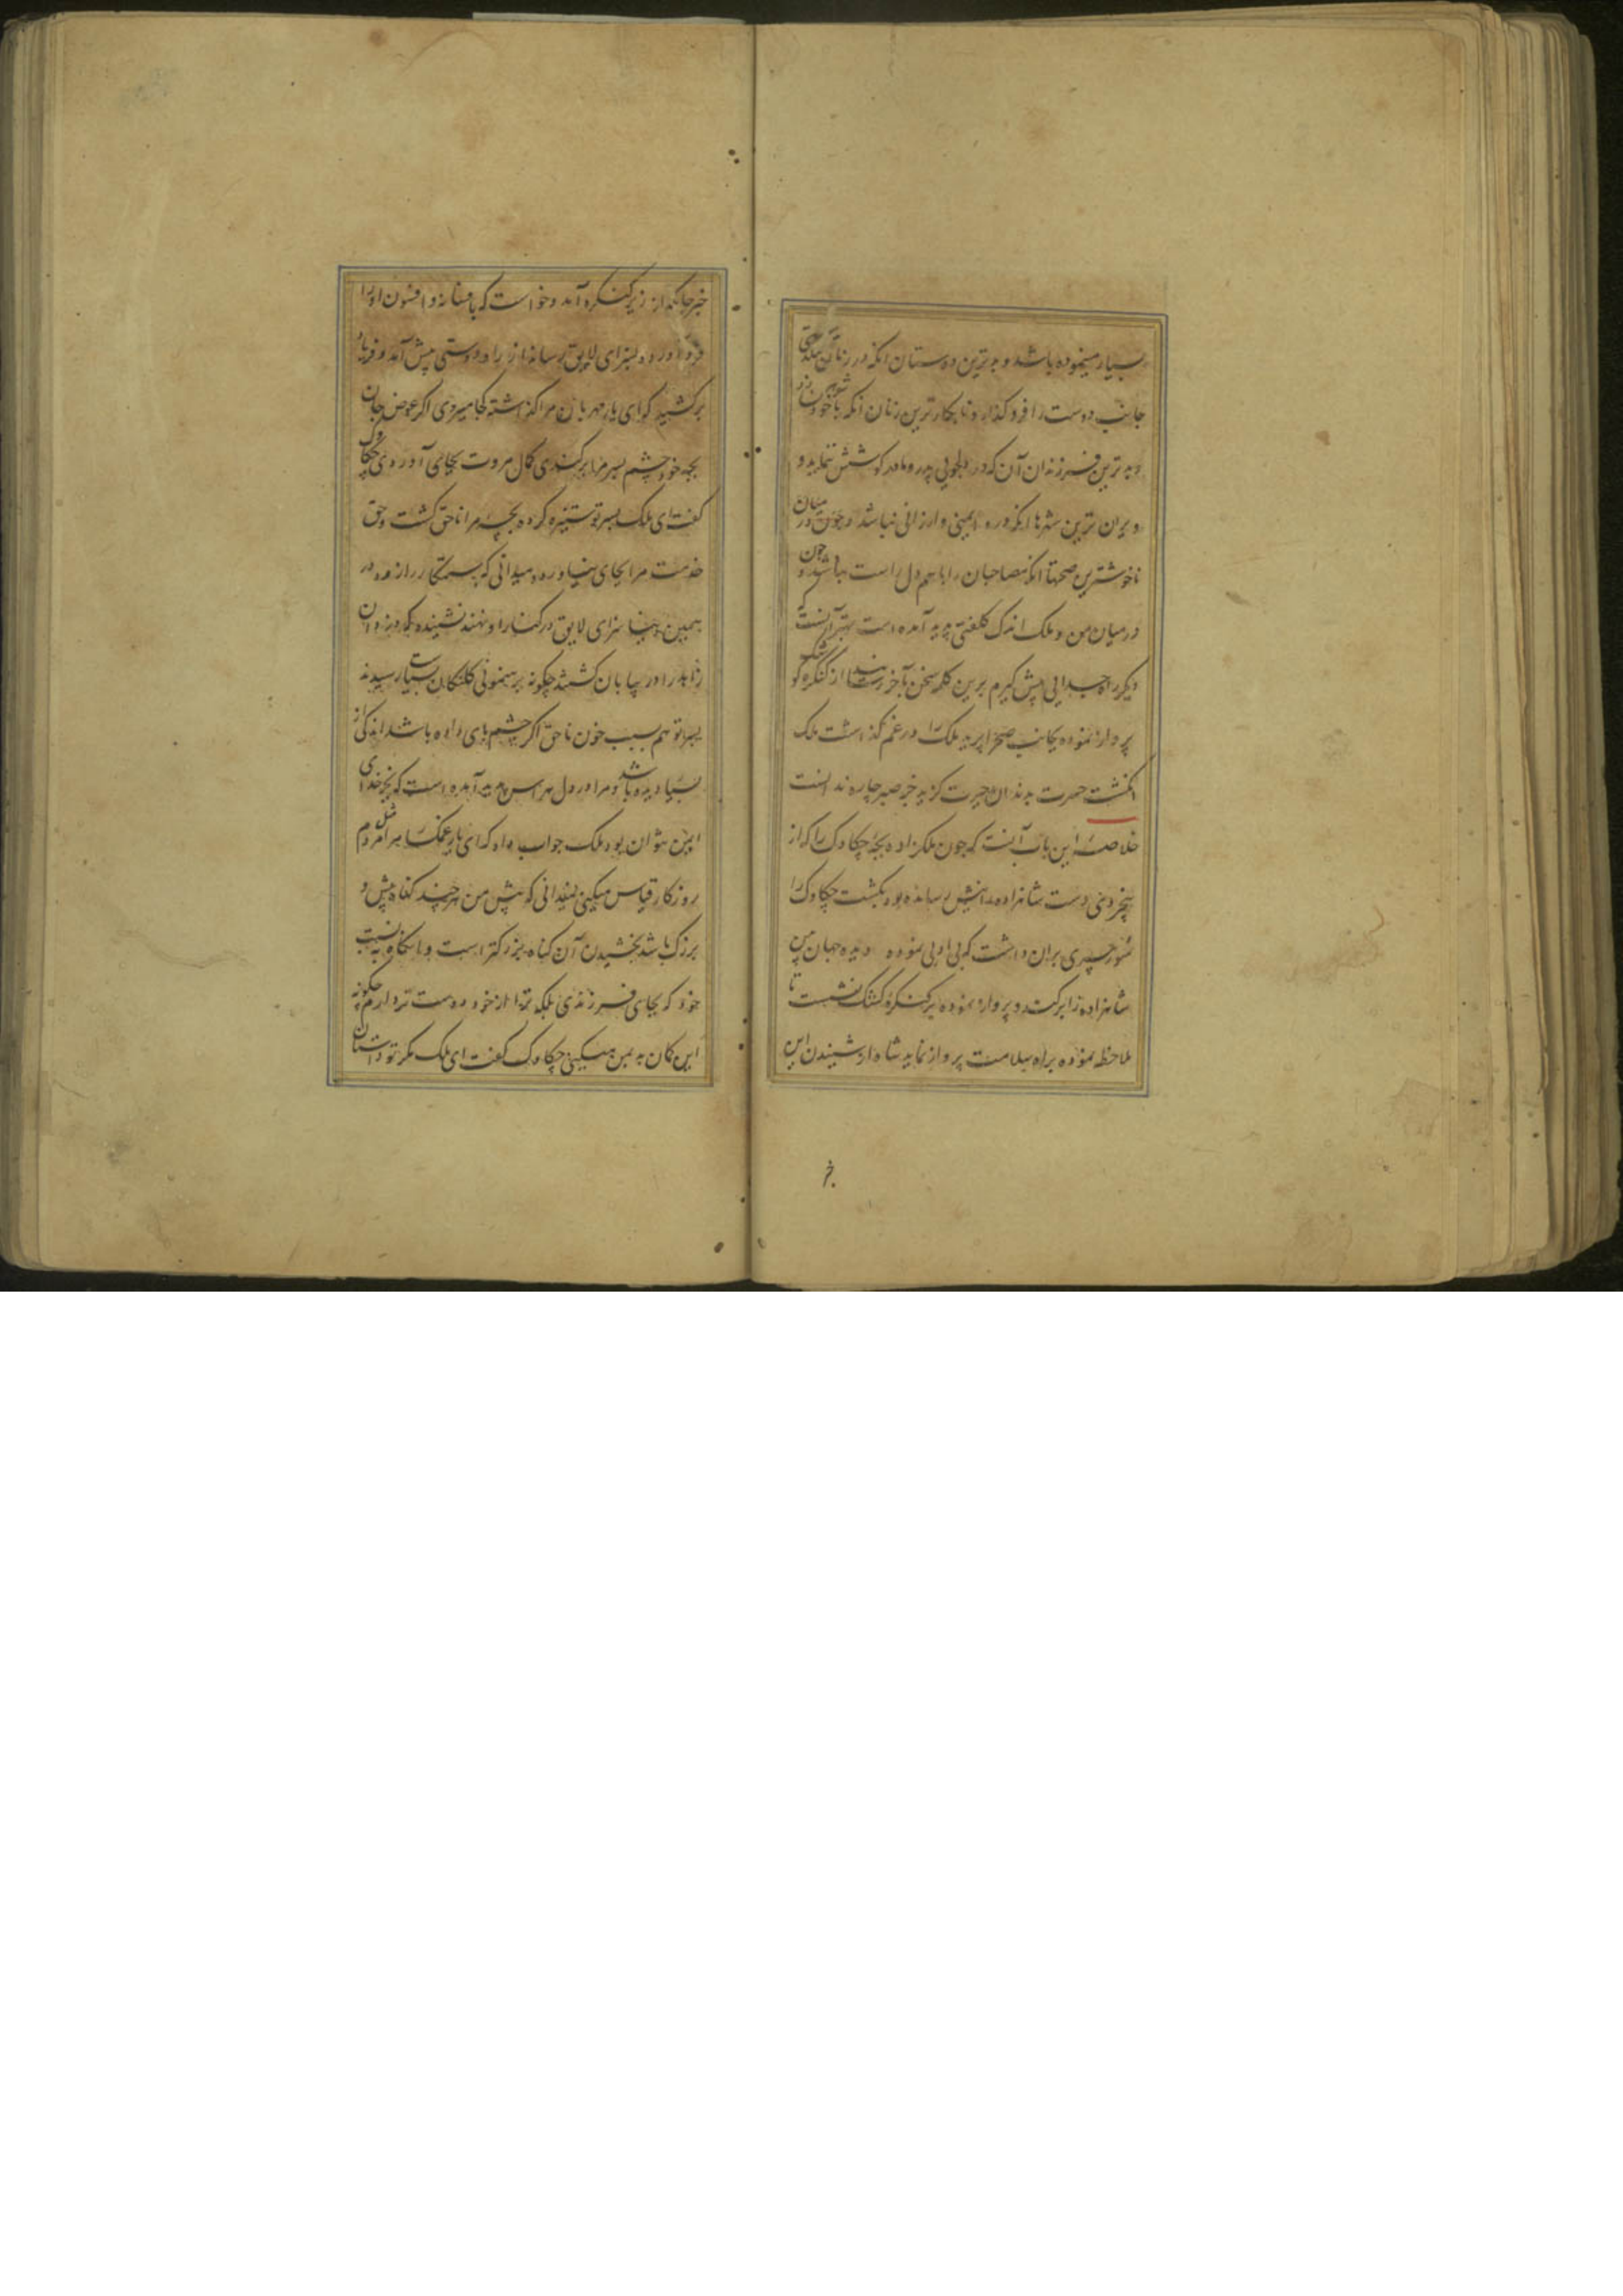 بسیار مینموده باشد و بدترین دوستان انکه در زمان سختی
جانب دوست را فرو گذارد و نابکارترین زنان انکه با شوهر خود نسازد
و بدترین فرزندان آن که در دلجویی پدر و مادر کوشش ننماید و
ویران ترین شهرها انکه درو ایمنی و ارزانی نباشد و چون در میان
ناخوشترین صحبتها انکه مصاحبان را با هم دل راست نباشد و چون
در میان من و ملک اندک کلفتی پدید آمده است بهتر آنست که
دیکر راه جدایی پیش کیرم برین کلمه سخن بآخر رسانید از کنکره کوشک
پرواز نموده بجانب صحرا پرید ملک را در غم گذاشت ملک
انکشت حسرت بدندان حیرت کزید جز صبر چاره ندانست
خلاصه این باب آنست که چون ملکزاده بچه چکاوک را که از
بیخردی دست شاهزاده را نیش رسانده بود بکشت چکاوک را
شور بران داشت که بی ادبی نموده دیده جهان بین
شاهزاده را برکند و پرواز نموده بر کنکره کوشک نشست تا
ملاحظه نموده براه سلامت پرواز نماید شاه از شنیدن این
خ
خبر جانگداز زیر کنکره آمد و خواست که بافسانه و افسون او را
فرود آورده بسزای لایق رساند از راه دوستی پیش آمد و فریاد
برکشید که ای یار مهربان مرا گذاشته کجا میروی اگر عوض جان
بچه خود چشم پسر مرا برکندی کمال مروت بجای آوردی چکاوک
کفت ای ملک پسر تو ستیزه کرده بچه مرا ناحق کشت و حق
خدمت مرا بجای نیاورد و میدانی که ستمکار را زود در
همین دنیا سزای لایق در کنار او نهند نشنیده که دزدان
زاهد را در بیابان کشتند چکونه برهنمونی کلنکان بسیاست رسیدند
پسر تو هم بسبب خون ناحق اگر چشم بای داده باشد اندکی از
بسیار دیده باشد و مرا در دل هراس پدید آمده است که
ایمن نتوان بود ملک جواب داد که ای یار غمکسار مرا مثل مردم
روزکار قیاس میکنی نمیدانی که پیش من هرچند کناه بیش و
بزرک باشد بخشیدن آن کناه بزرکتر است و انکاه به نسبت
خود که بجای فرزندی بلکه ترا از خود دوست تر دارم چکونه
این کمان به من میکنی چکاوک کفت ای ملک مکر تو داستان